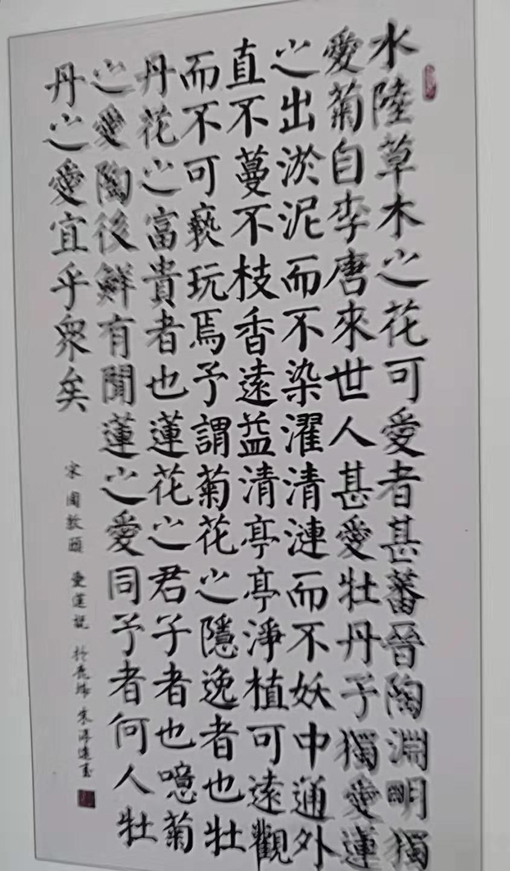 水陸草木之花可愛者甚蕃晉陶淵明獨
愛菊自李唐來世人甚愛牡丹予獨愛蓮
之出淤泥而不染濯清漣而不妖中通外
直不蔓不枝香遠益清亭亭淨植可遠觀
而不可褻玩焉予謂菊花之隱逸者也牡
丹花之富貴者也蓮花之君子者也噫菊
之愛陶後鮮有聞蓮之愛同予者何人牡
丹之愛宜乎眾矣
宋周敦頤 愛蓮說